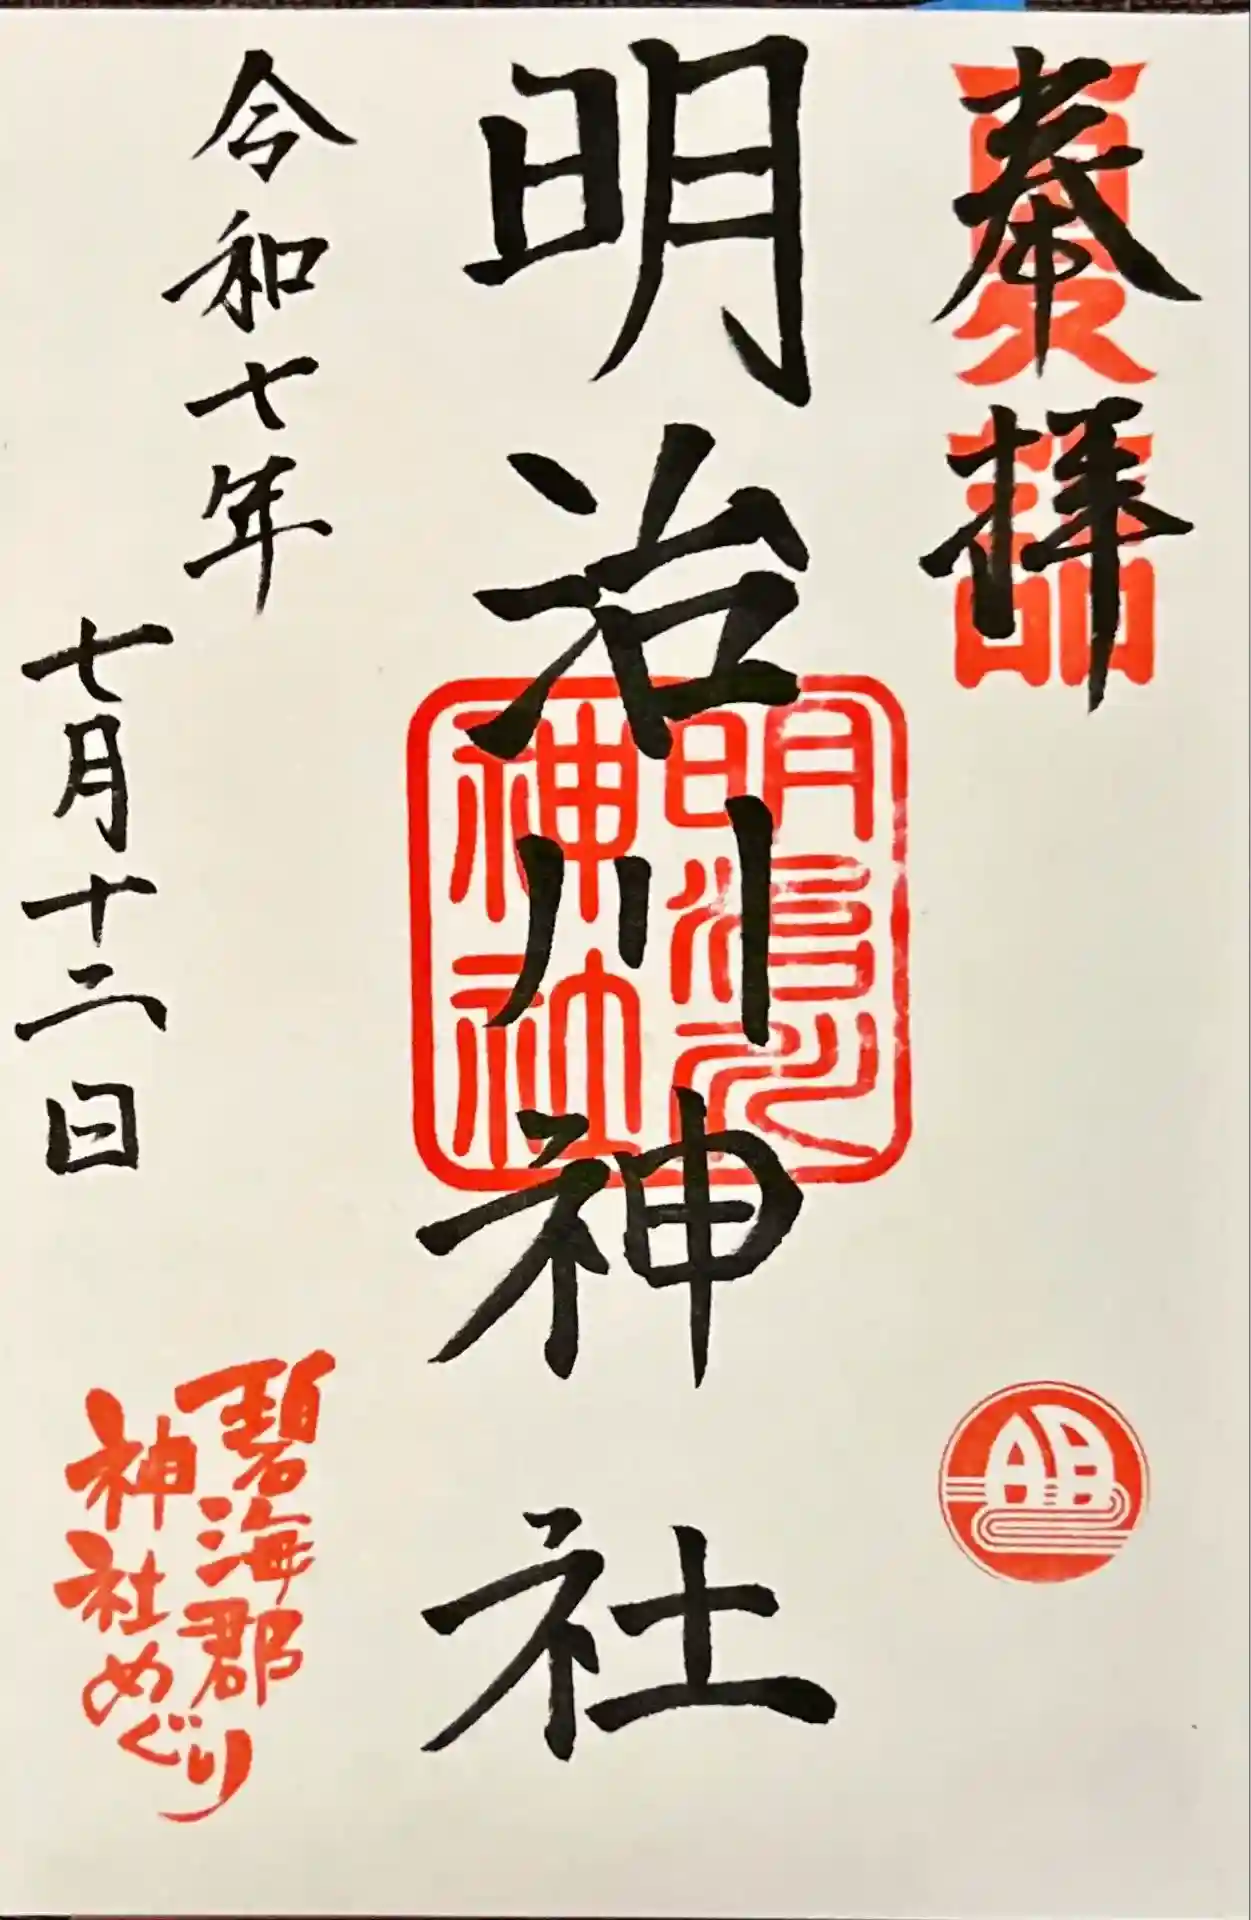 奉拝
夏詣
明治川神社
明治川
神社
令和七年
七月十二日
碧海郡
神社めぐり